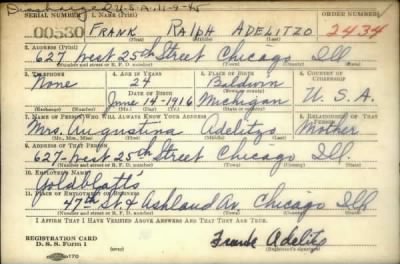 Discharged U.S.A. 11-9-45
SERIAL NUMBER 1. NAME (Print) ORDER NUMBER
00530 FRANK RALPH ADELITZO 2434
(First) (Middle) (Last)
2. ADDRESS (Print)
627 West 25th Street Chicago Ill
(Number and street or R. F. D. number) (Town) (County) (State)
3. TELEPHONE 4. AGE IN YEARS 5. PLACE OF BIRTH 6. COUNTRY OF CITIZENSHIP
None 24 Baldwin
DATE OF BIRTH
June 14-1916 Michigan U.S.A.
(Exchange) (Number) (Mo.) (Day) (Yr.) (State or country)
7. NAME OF PERSON WHO WILL ALWAYS KNOW YOUR ADDRESS 8. RELATIONSHIP OF THAT PERSON
Mrs. Augustina Adelitzo Mother
(Mr., Mrs., Miss) (First) (Middle) (Last)
9. ADDRESS OF THAT PERSON
627-West 25th Street Chicago Ill.
(Number and street or R. F. D. number) (Town) (County) (State)
10. EMPLOYER'S NAME
Goldblatt's
11. PLACE OF EMPLOYMENT OR BUSINESS
47th St. & Ashland Av. Chicago Ill.
(Number and street or R. F. D. number) (Town) (County) (State)
I AFFIRM THAT I HAVE VERIFIED ABOVE ANSWERS AND THAT THEY ARE TRUE.
REGISTRATION CARD
D. S. S. Form 1
Frank Adelitzo
(Registrant's signature)